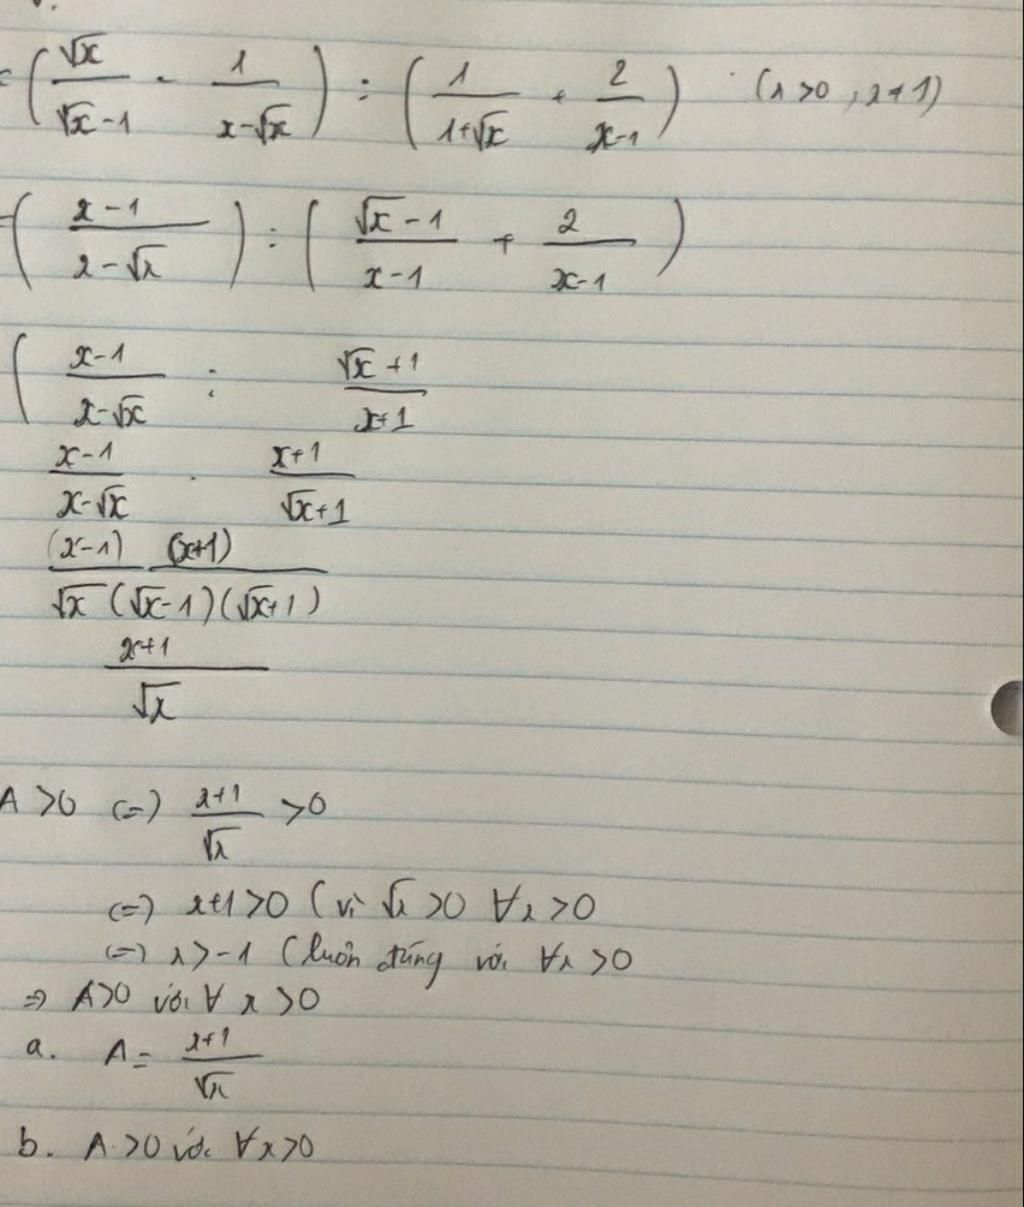 = (√x/(√x-1) - 1/(x-√x)) : (1/(1+√x) + 2/(x-1)) (x>0, x≠1)
= ((x-1)/(x-√x)) : ((√x-1)/(x-1) + 2/(x-1))
( (x-1)/(x-√x) : (√x+1)/(x+1)
(x-1)/(x-√x) . (x+1)/(√x+1)
(x-1) (x+1)/(√x (√x-1)(√x+1))
(x+1)/√x
A >0 (=) (x+1)/√x >0
(=) x+1>0 (vì √x >0 ∀x >0
(=) x>-1 (luôn đúng với ∀x >0
=> A>0 với ∀ x >0
a. A = (x+1)/√x
b. A >0 với ∀x>0